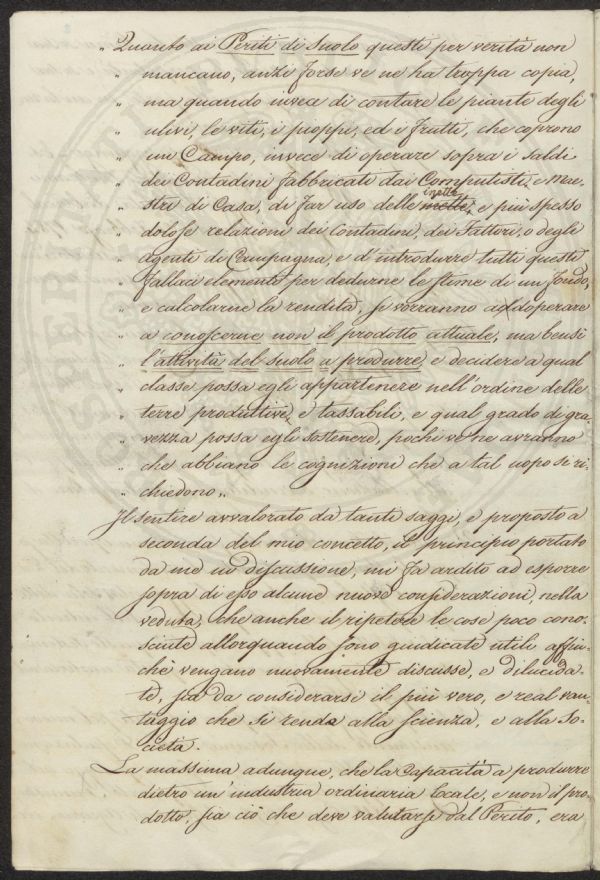 „ Quanto ai Periti di Suolo questi per verità non
„ mancano, anzi forse ve ne ha troppa copia,
„ ma quando invece di contare le piante degli
„ ulivi, le viti, i pioppi, ed i frutti, che coprono
„ un Campo, invece di operare sopra i saldi
„ dei Contadini fabbricati dai Computisti, e Mae-
„ stri di Casa, di far uso delle inette, e più spesso
„ dolose relazioni dei Contadini, dei Fattori, o degli
„ agenti di Campagna, e d'introdurre tutti questi
„ fallaci elementi per dedurne le stime di un fondo,
„ e calcolarne la rendita, si vorranno adoperare
„ a conoscerne non il prodotto attuale, ma bensì
„ l'attività del suolo a produrre, e decidere a qual
„ classe possa egli appartenere nell'ordine delle
„ terre produttive, e tassabili, e qual grado di gra-
„ vezza possa egli sostenere, pochi ve ne avranno
„ che abbiano le cognizioni che a tal uopo si ri-
„ chiedono „
Il sentire avvalorato da tanti saggi, e proposto a
seconda del mio concetto, il principio portato
da me in discussione, mi fa ardito ad esporre
sopra di esso alcune nuove considerazioni, nella
veduta, che anche il ripetere le cose poco cono-
sciute allorquando sono giudicate utili affin-
chè vengano nuovamente discusse, e dilucida-
te, sia da considerarsi il più vero, e real van-
taggio che si renda alla scienza, e alla So-
cietà.
La massima adunque, che la capacità a produrre
dietro un'industria ordinaria locale, e non il pro-
dotto, sia ciò che deve valutarsi dal Perito, era